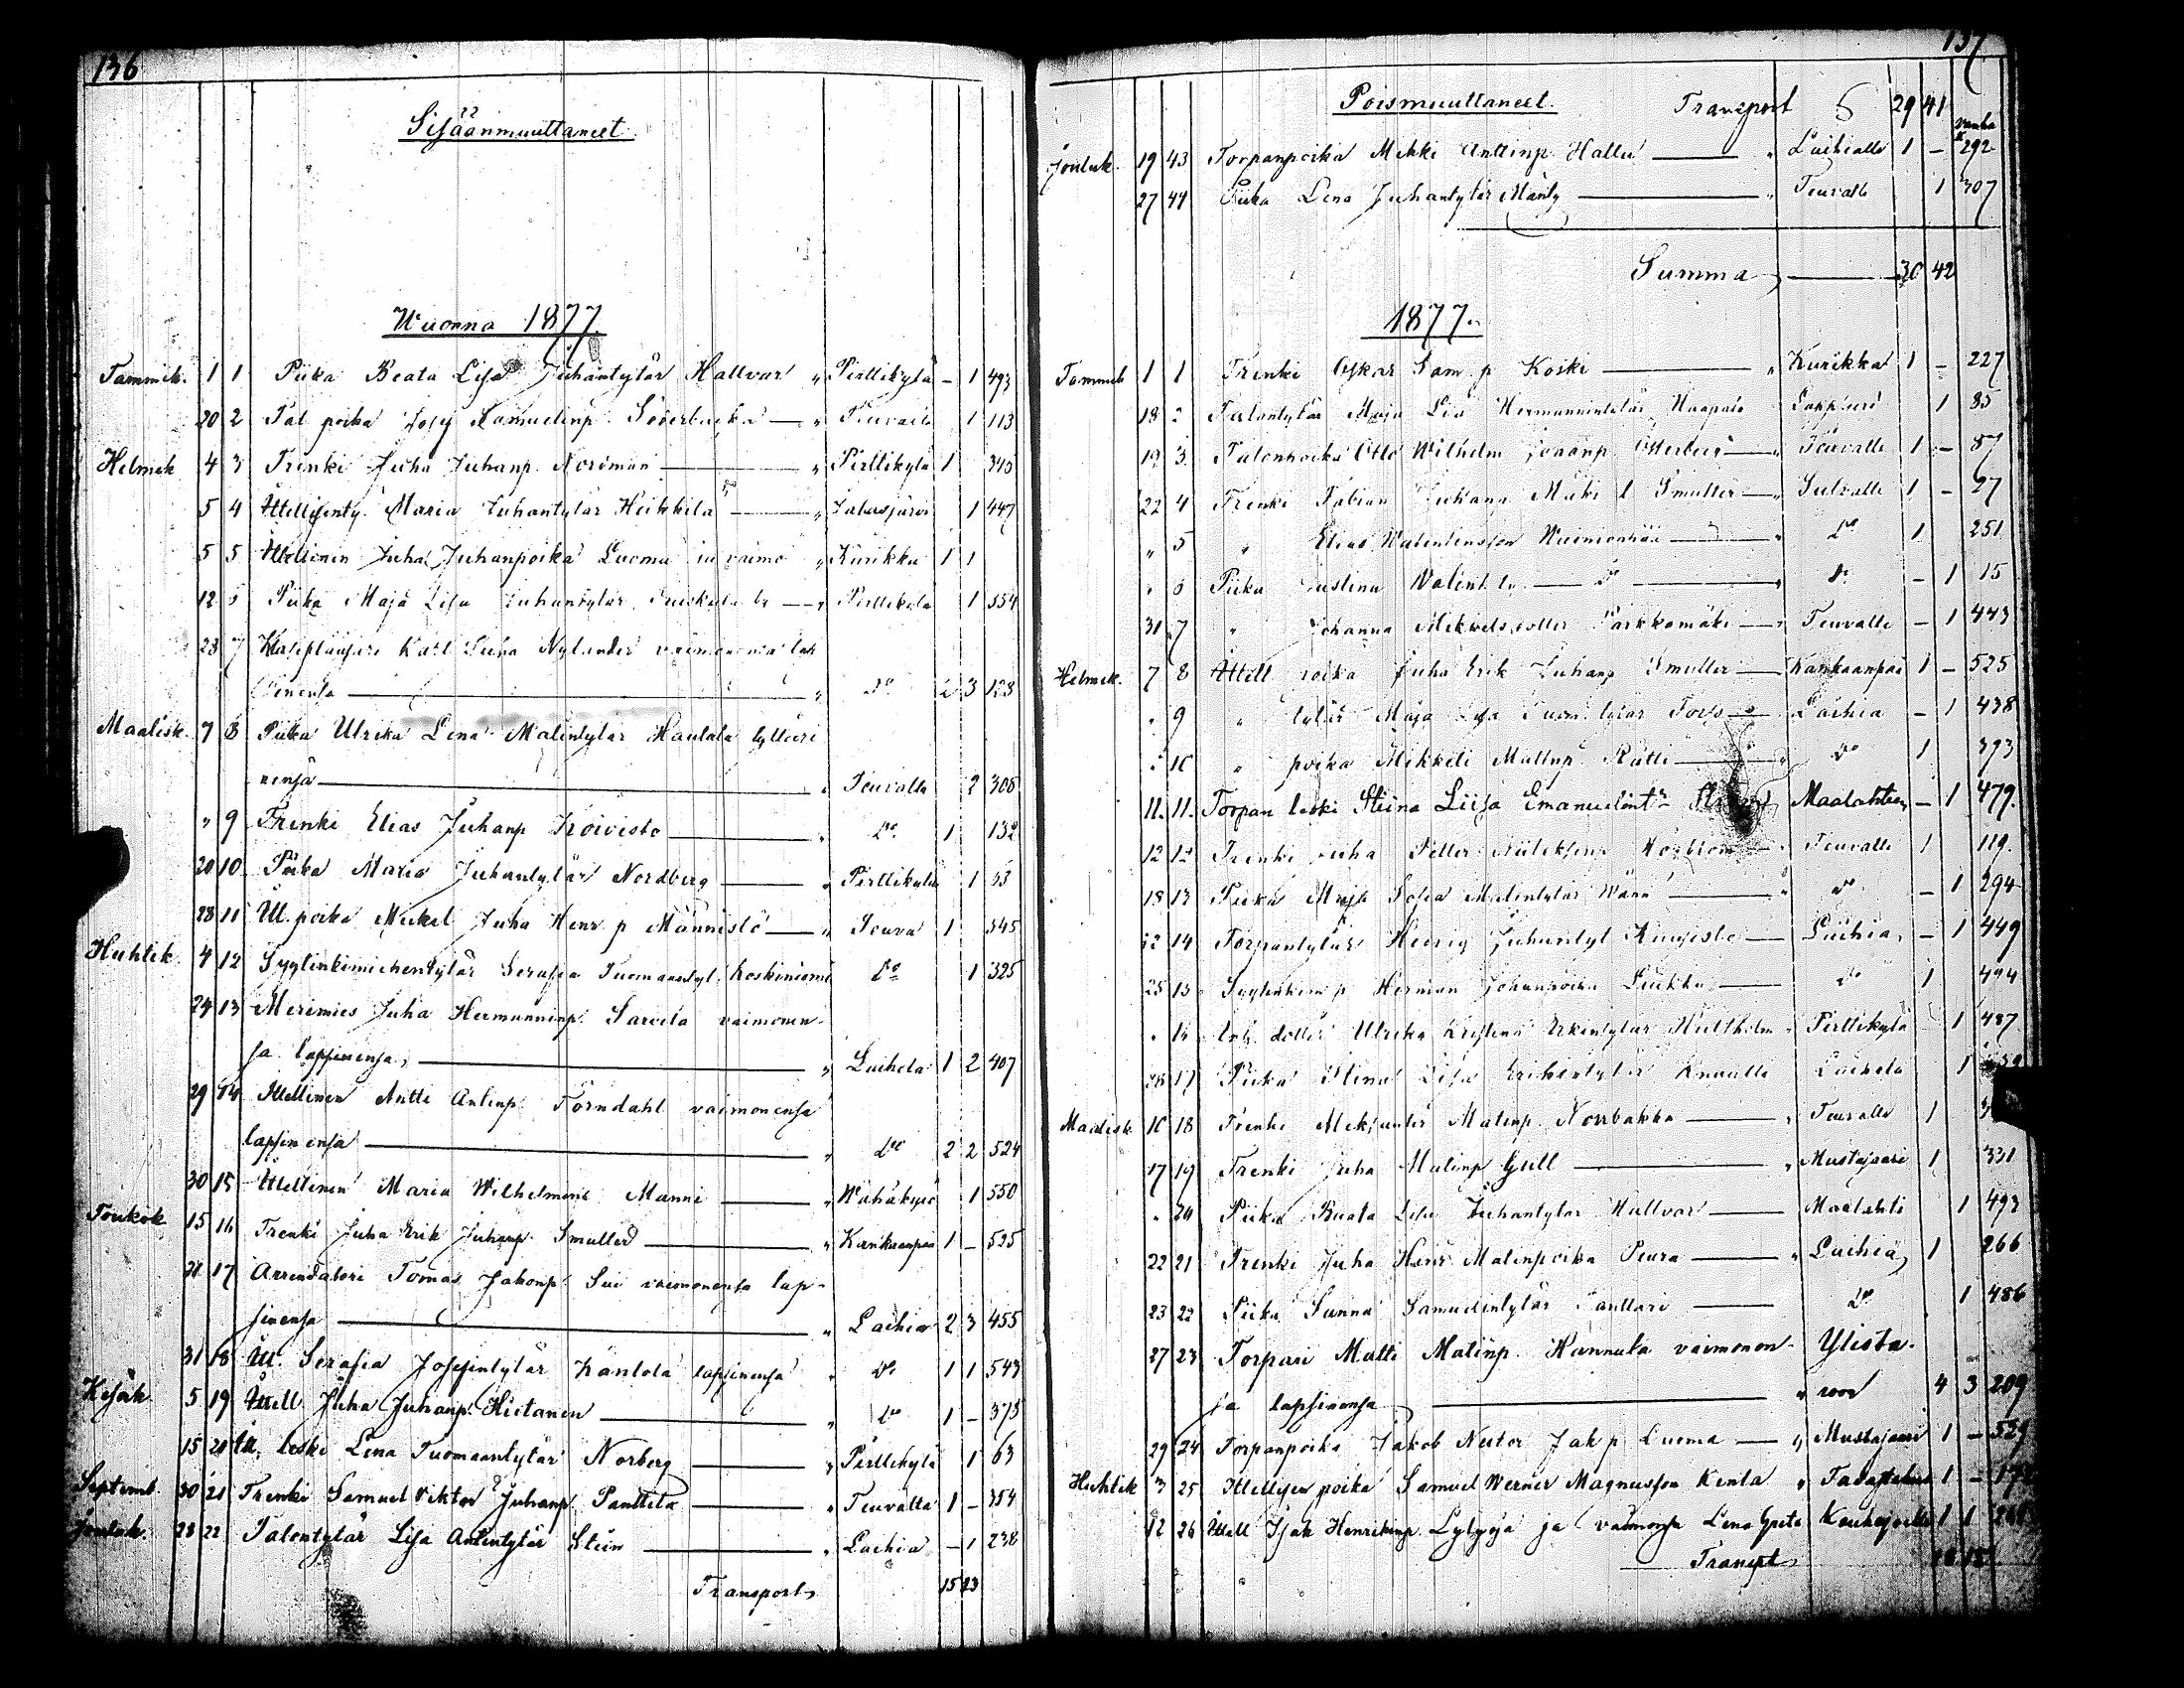 136
Sisäänmuuttaneet.
Wuonna 1877.
Tammik. 1 1 Piika Beata Lisa Juhantytär Hallvar " Pirttikylä - 1 493
20 2 Tal poika Josef Samuelinp. Söderbacka " Teuvalta 1 113
Helmik 4 3 Trenki Juha Juhanp. Norrman " Pirttikylä 1 345
5 4 Maria Juhantytär Heikkilä " Jalasjärvi 1 447
5 5 Ittellinen Juha Juhanpoika Luoma ja vaimo " Kurikka 1 1
12 6 Piika Maja Lisa Juhantytär " Pirttikylä 1 354
23 7 Karl Juha Nylander vaimonensa lap
sinensa " Do 2 3 128
Maalisk. 7 8 Piika Ulrika Lena Matintytär Hautala tyttäri
nensä " Teuvalta 2 308
" 9 Trenki Elias Juhanp Koivisto " Do 1 132
20 10 Piika Maria Juhantytär Nordberg " Pirttikylä 1 53
28 11 It. poika Mickel Juha Henr. p Männistö " Teuva 1 345
Huhtik. 4 12 Syytinkimiehentytär Serafia Tuomaantyt. Koskiniemi Do 1 325
24 13 Merimies Juha Hermanninp. Sarvela vaimonen-
sa lapsinensa, " Laihela 1 2 407
29 14 Ittellinen Antti Antinp. Törndahl vaimonensa
lapsinensa " Do 2 2 524
30 15 Ittellinen Maria Wilhelmina Manni " Wähäkyrö 1 550
Toukok 15 16 Trenki Juha Erik Juhanp. Smulter " Kankaanpää 1 - 525
21 17 Arrendatori Tomas Jakonp. vaimonensa lap-
sinensa " Laihia 2 3 455
31 18 It. Serafia Josefintytär Kantola lapsinensa " Do 1 1 543
Kesäk. 5 19 Ittell Juha Juhanp. Hietanen " Do 1 - 375
15 20 It. leski Lena Tuomaantytär Norberg " Pirttikylä 1 63
Septemb. 30 21 Trenki Samuel Viktor Juhanp. Panttila " Teuvalta 1 - 354
Jouluk. 28 22 Talontytär Lisa Antintytär Stein " Laihia - 1 238
Transport, 15 23
137
Poismuuttaneet. Transport 29 41
vanha
K
Jouluk. 19 43 Torpanpoika Mikki Anttinp. Hallu " Laihialle 1 - 292
27 44 Piika Lena Juhantytär Mänty " Teuvalle 1 307
Summa 30 42
1877.
Tammik 1 1 Trenki Oskar Sam. p Koski " Kurikka 1 - 227
18 2 Talontytär Maja Lisa Hermannintytär Haapala Lappväri 1 85
19 3 Talonpoika Otto Wilhelm Österberg " Teuvalle 1 - 87
22 4 Trenki Fabian Juhana Mäki l Smulter " Sulvalle 1 - 27
" 5 " Elias Valentinsson Wainionpää " Do 1 251
" 6 Piika Justina Valent. ty. Do " Do - 1 15
31 7 " Johanna Parkkamäki " Teuvalle - 1 443
Helmik. 7 8 Ittell poika Juha Erik Juhanp Smulter Kankaanpää 1 - 525
" 9 " tytär Maja Lisa Tuom. tytär Fors Laihia - 1 438
" 10 " poika Mikkeli Mattinp. Rätti Do 1 393
11. 11. Torpan leski Stiina Liisa Emanuelint. Maalahteen - 1 479.
12 12 Trenki Juha Petter " Teuvalle 1 119.
18 13 Piika Maja Sofia Matintytär " Do - 1 294
22 14 Torpantytär Hedvig Juhantyt Laihia, - 1 449
25 15 Syytinkim. p Herman Johanpoika Luukku Do 1 494
" 16 Inh. dotter Ulrika Kristina Erkintytär Hultholm " Pirttikylä 1 487
26 17 Piika Stina Lisa Erikintytär Laihela 1
Maalisk 10 18 Trenki Matinp. Norrbakka " Teuvalle 1
17 19 Trenki Juha Matinp Grill " Mustasaari 1 331
" 20 Piika Beata Lisa Juhantytär Hallvar Maalahti 1 493
22 21 Trenki Juha Henr. Matinpoika Peura " Laihia, 1 266
23 22 Piika Sanna Samuelintytär Santtari Do 1 486
27 23 Torpari Matti Matinp. Hannula vaimonen- Ylista-
sa lapsinensa " roon 4 3 209
29 24 Torpanpoika Jakob Nestor Jak p Luoma " Mustasaari 1 - 529
Huhtik 3 25 Ittellisen poika Samuel Werner Magnusson Kenta " 1 -
12 26 Ittell Isak Henrikinp. Lylyoja ja vaimonsa Lena Greta Kauhajoelle 1 1
Transpt